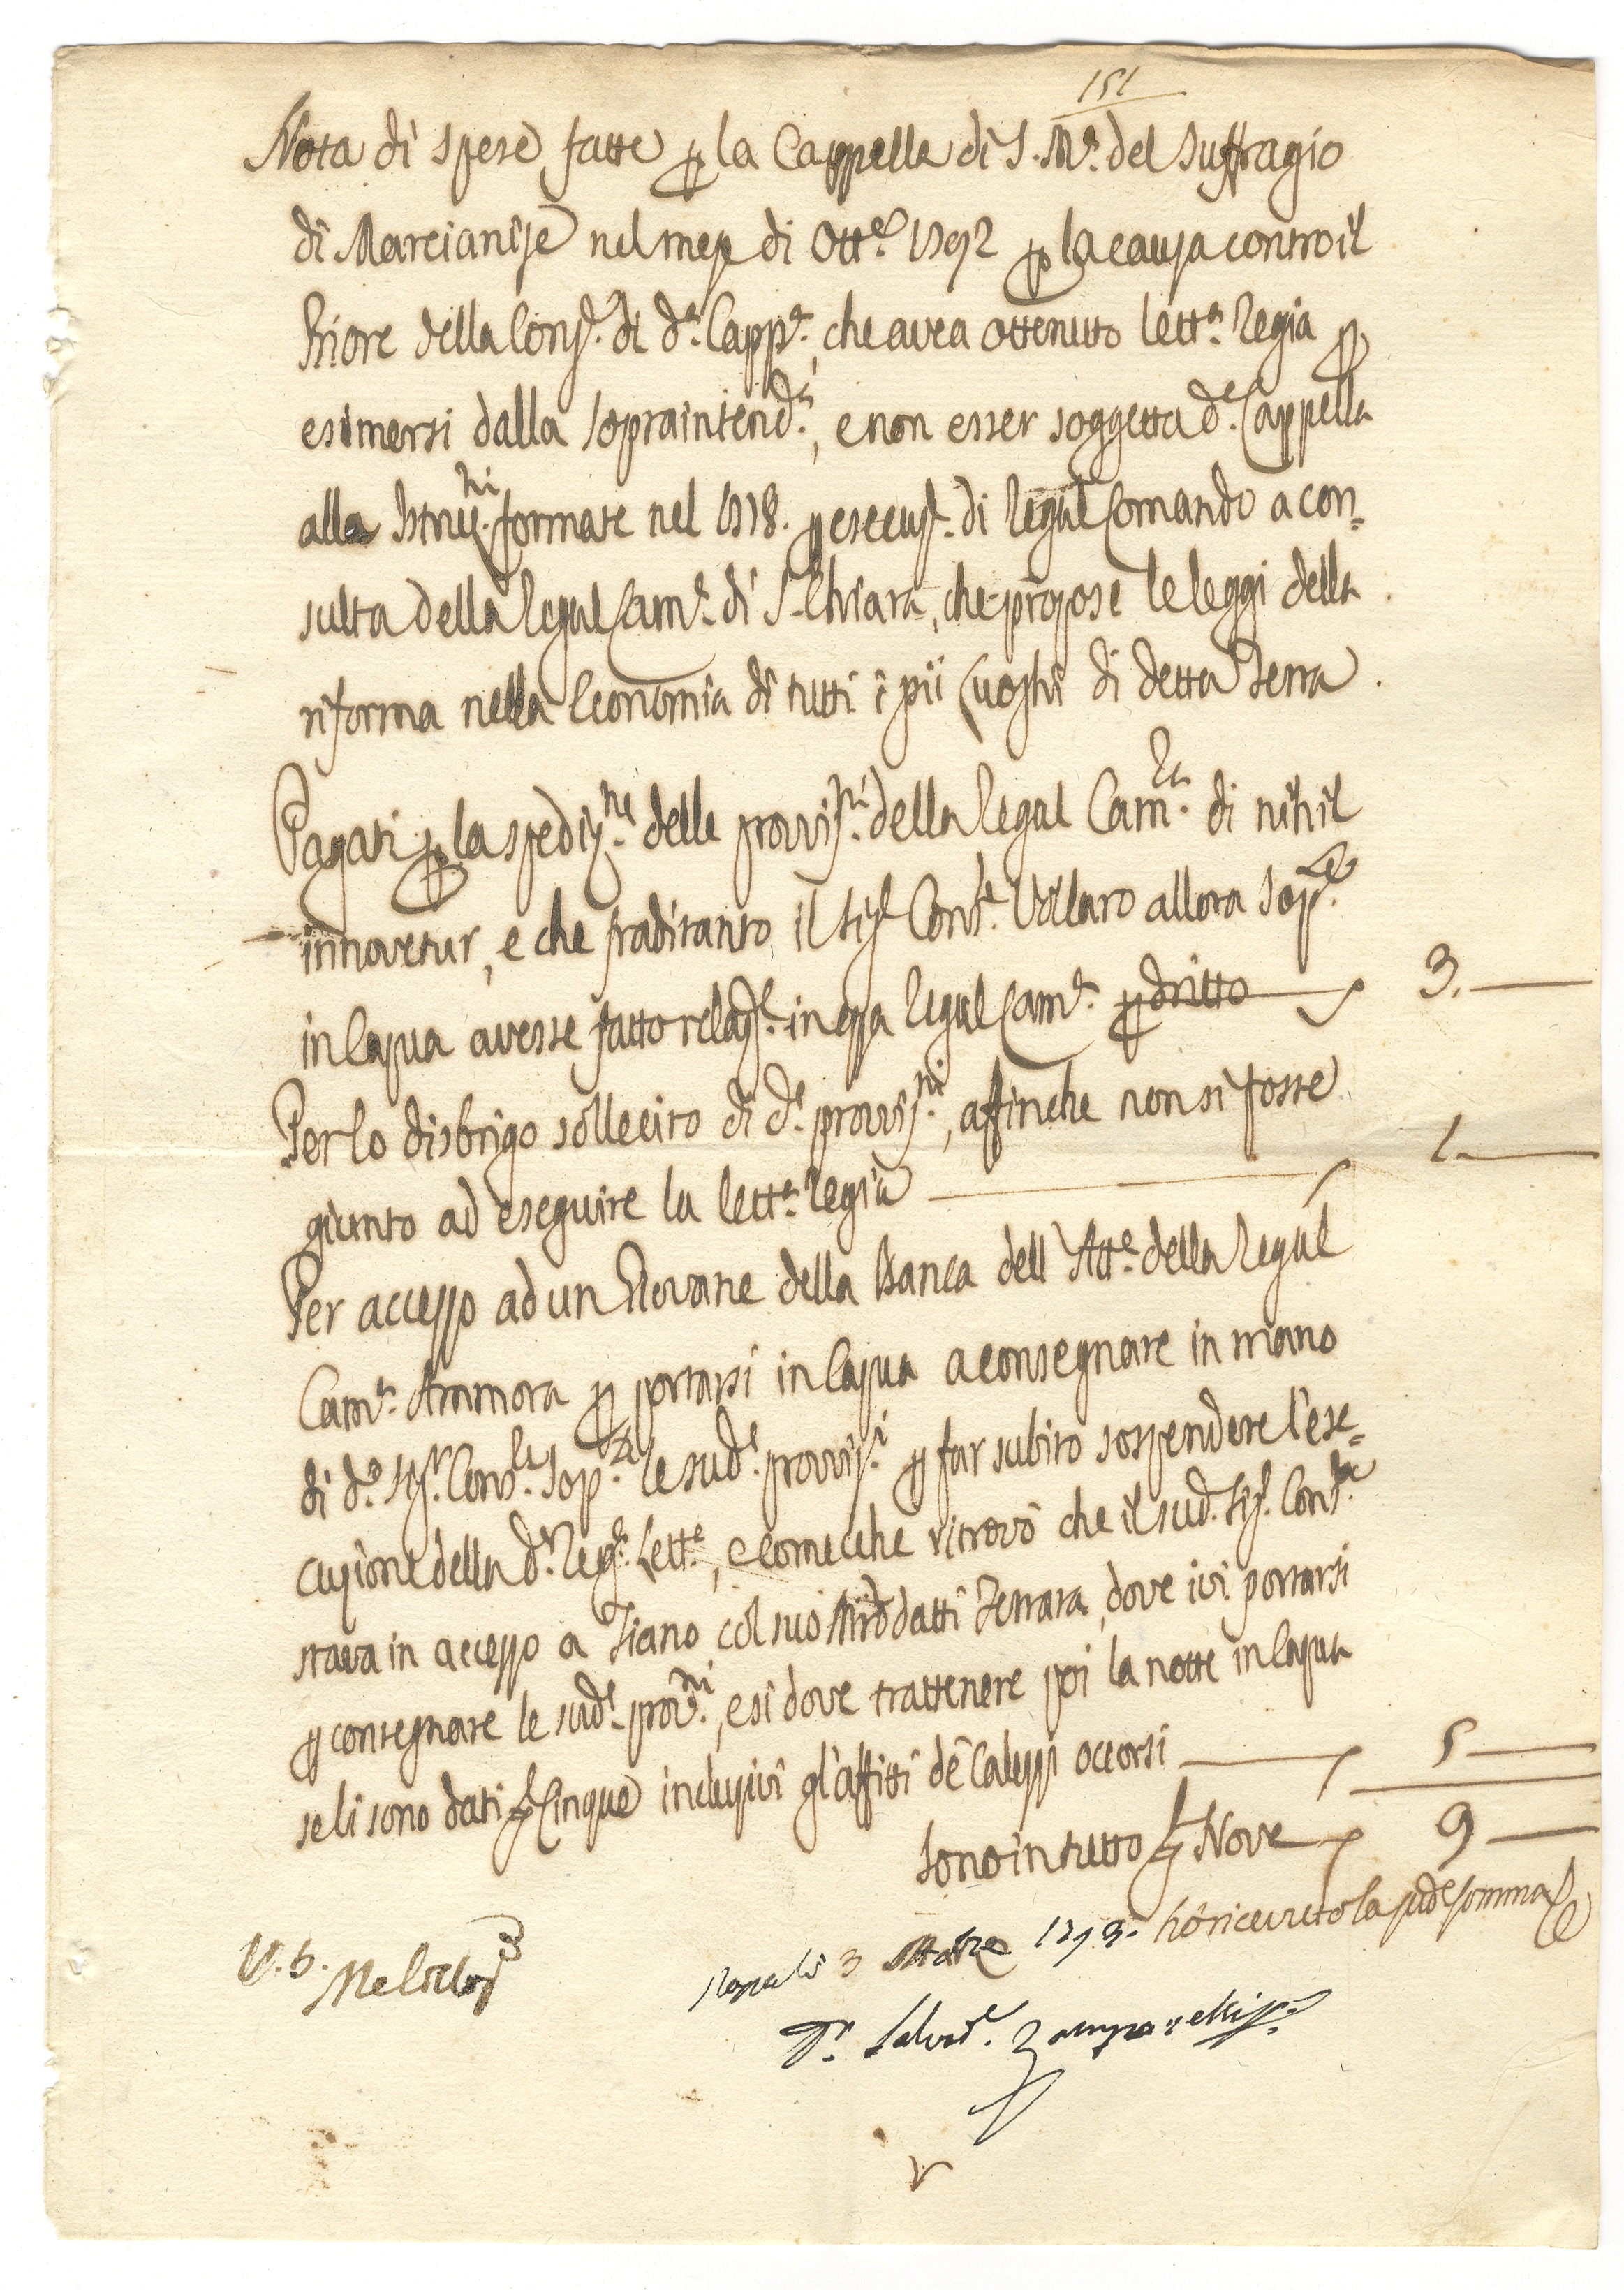 151
Nota di spese fatte p la Cappella di S. Ma. del Suffragio
di Marcianise nel mese di Otte. 1792 p la causa contro il
Priore della Cong.e di da. Cappa., che avea ottenuto letta. Regia p
esimersi dalla Sopraintendza., e non esser soggetta da. Cappella
alle Istruzni. formate nel 1778. p esecuze. di Regal Comando a con=
sulta della Regal Cama. di S. Chiara, che propose le leggi della
riforma nella Economia di tutti i pii Luoghi di detta Terra.
Pagati p la spedizne. delle provisni. della Regal Camra. di nihil
innovetur, e che fraditanto il Sigr Consre. Vollaro allora Sople.
in Capua avesse fatto relaze. in essa Regal Cama. p dritto 3.
Per lo disbrigo sollecito di de. provisni., affinche non si fosse
giunto ad eseguire la letta. Regia 1.
Per accesso ad un Giovane della Banca dell'Atte. della Regal
Cama. Ammora p portarsi in Capua a consegnare in mano
di do. Sigr. Conse. Sople. le sude. provisni. p far subito sospendere l'ese=
cuzione della da. Rega. Letta., e comecche ritrovò che il sudo. Sigr. Consre.
stava in accesso a Tiano col suo Mro. d'atti Ferrara, dove ivi portarsi
p consegnare le sude. provni., e si dove trattenere poi la notte in Capua
se li sono dati Cinque inclusivi gl'affitti de Calessi occorsi 5
Sono in tutto Nove 9
Napoli 3 Ottobre 1793. hò ricevuto la sude. somma
Dr. Salvre.
V. B.